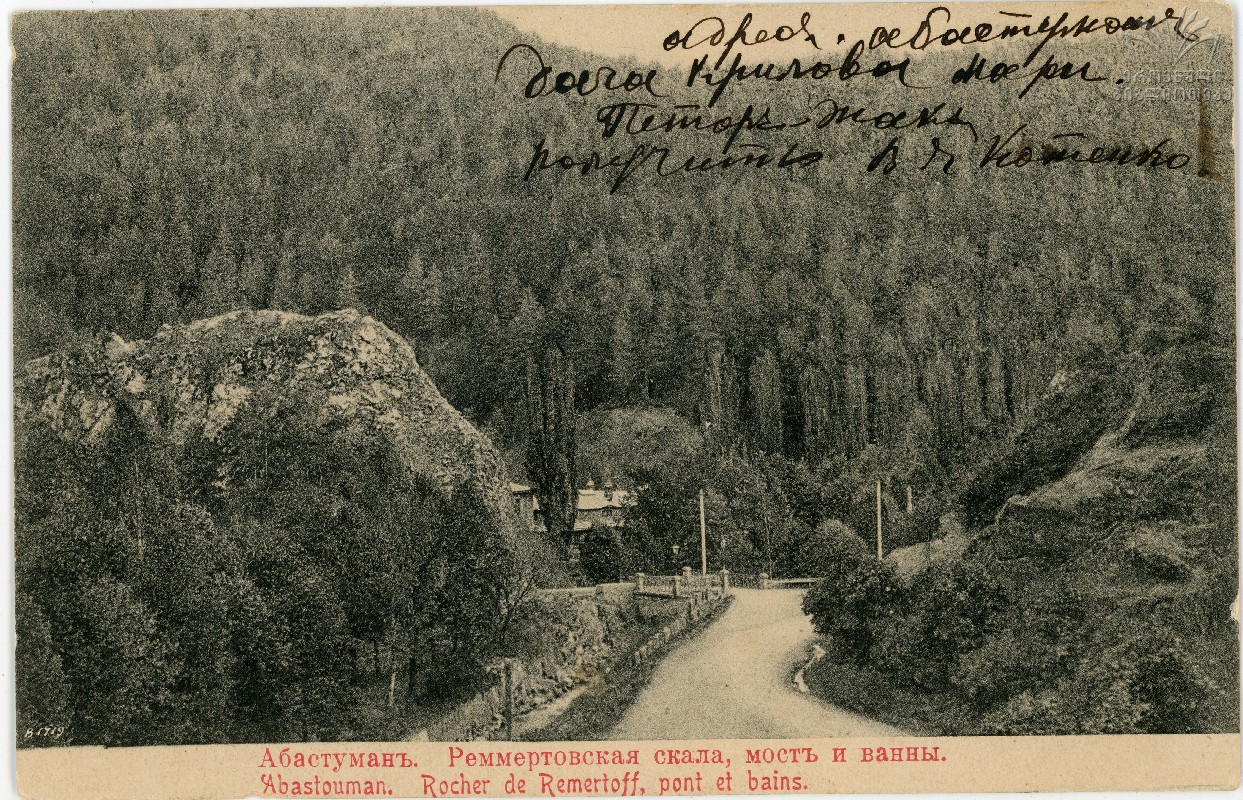 адрес. абастуман
дача Крилова мари.
Петоръ Жакъ
получить В Я Котенко
B 1719
Абастуманъ. Реммертовская скала, мостъ и ванны.
Abastouman. Rocher de Remertoff, pont et bains.